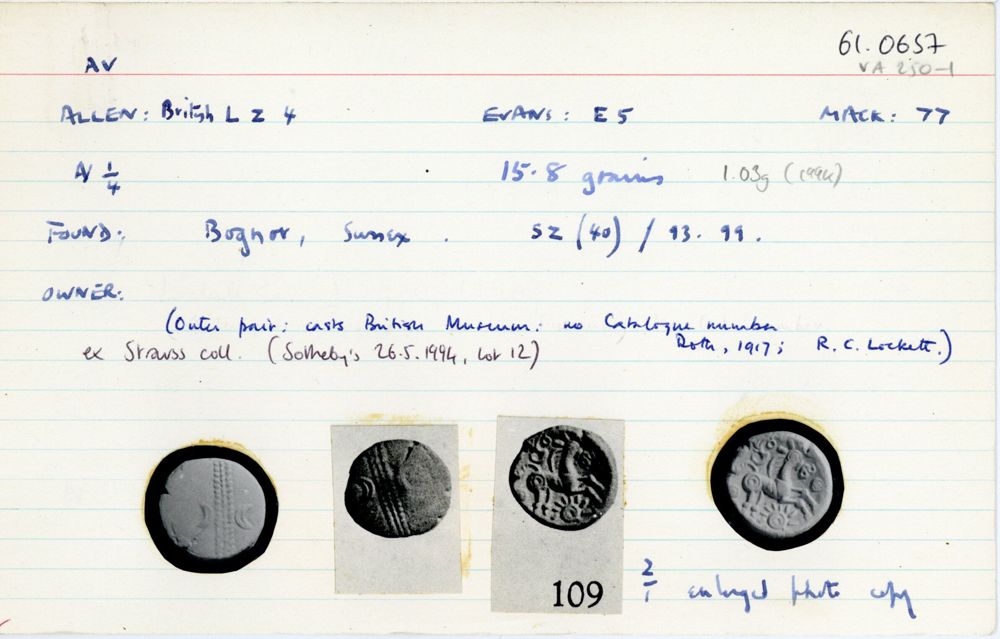 61.0657
VA 250-1
AV
ALLEN: British L Z 4 EVANS: E 5 MACK: 77
AV 1/4 15.8 grains 1.03g (1994)
FOUND: Bognor, Sussex. SZ (40) / 93.99.
OWNER:
(Outer pair: casts British Museum: no Catalogue number
Roth, 1917; R. C. Lockett.)
ex Strauss coll. (Sotheby's 26.5.1994, lot 12)
109
2/1 enlarged photo copy